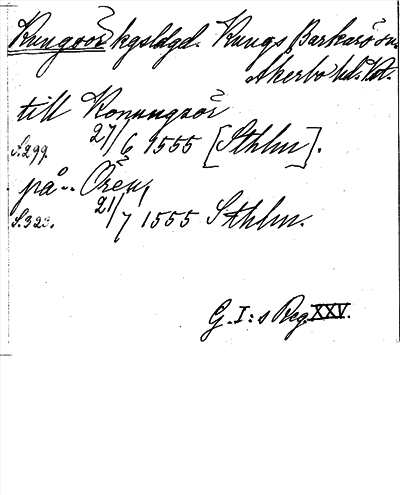 Kungsör kgsldgd. Kungs Barkarö sn.
Åkerbo hd. Vstm.
till Konungxör
S.299. 27/6 1555 [Sthlm].
på Ören,
S.323. 21/7 1555 Sthlm.
G. I:s Reg. XXV.